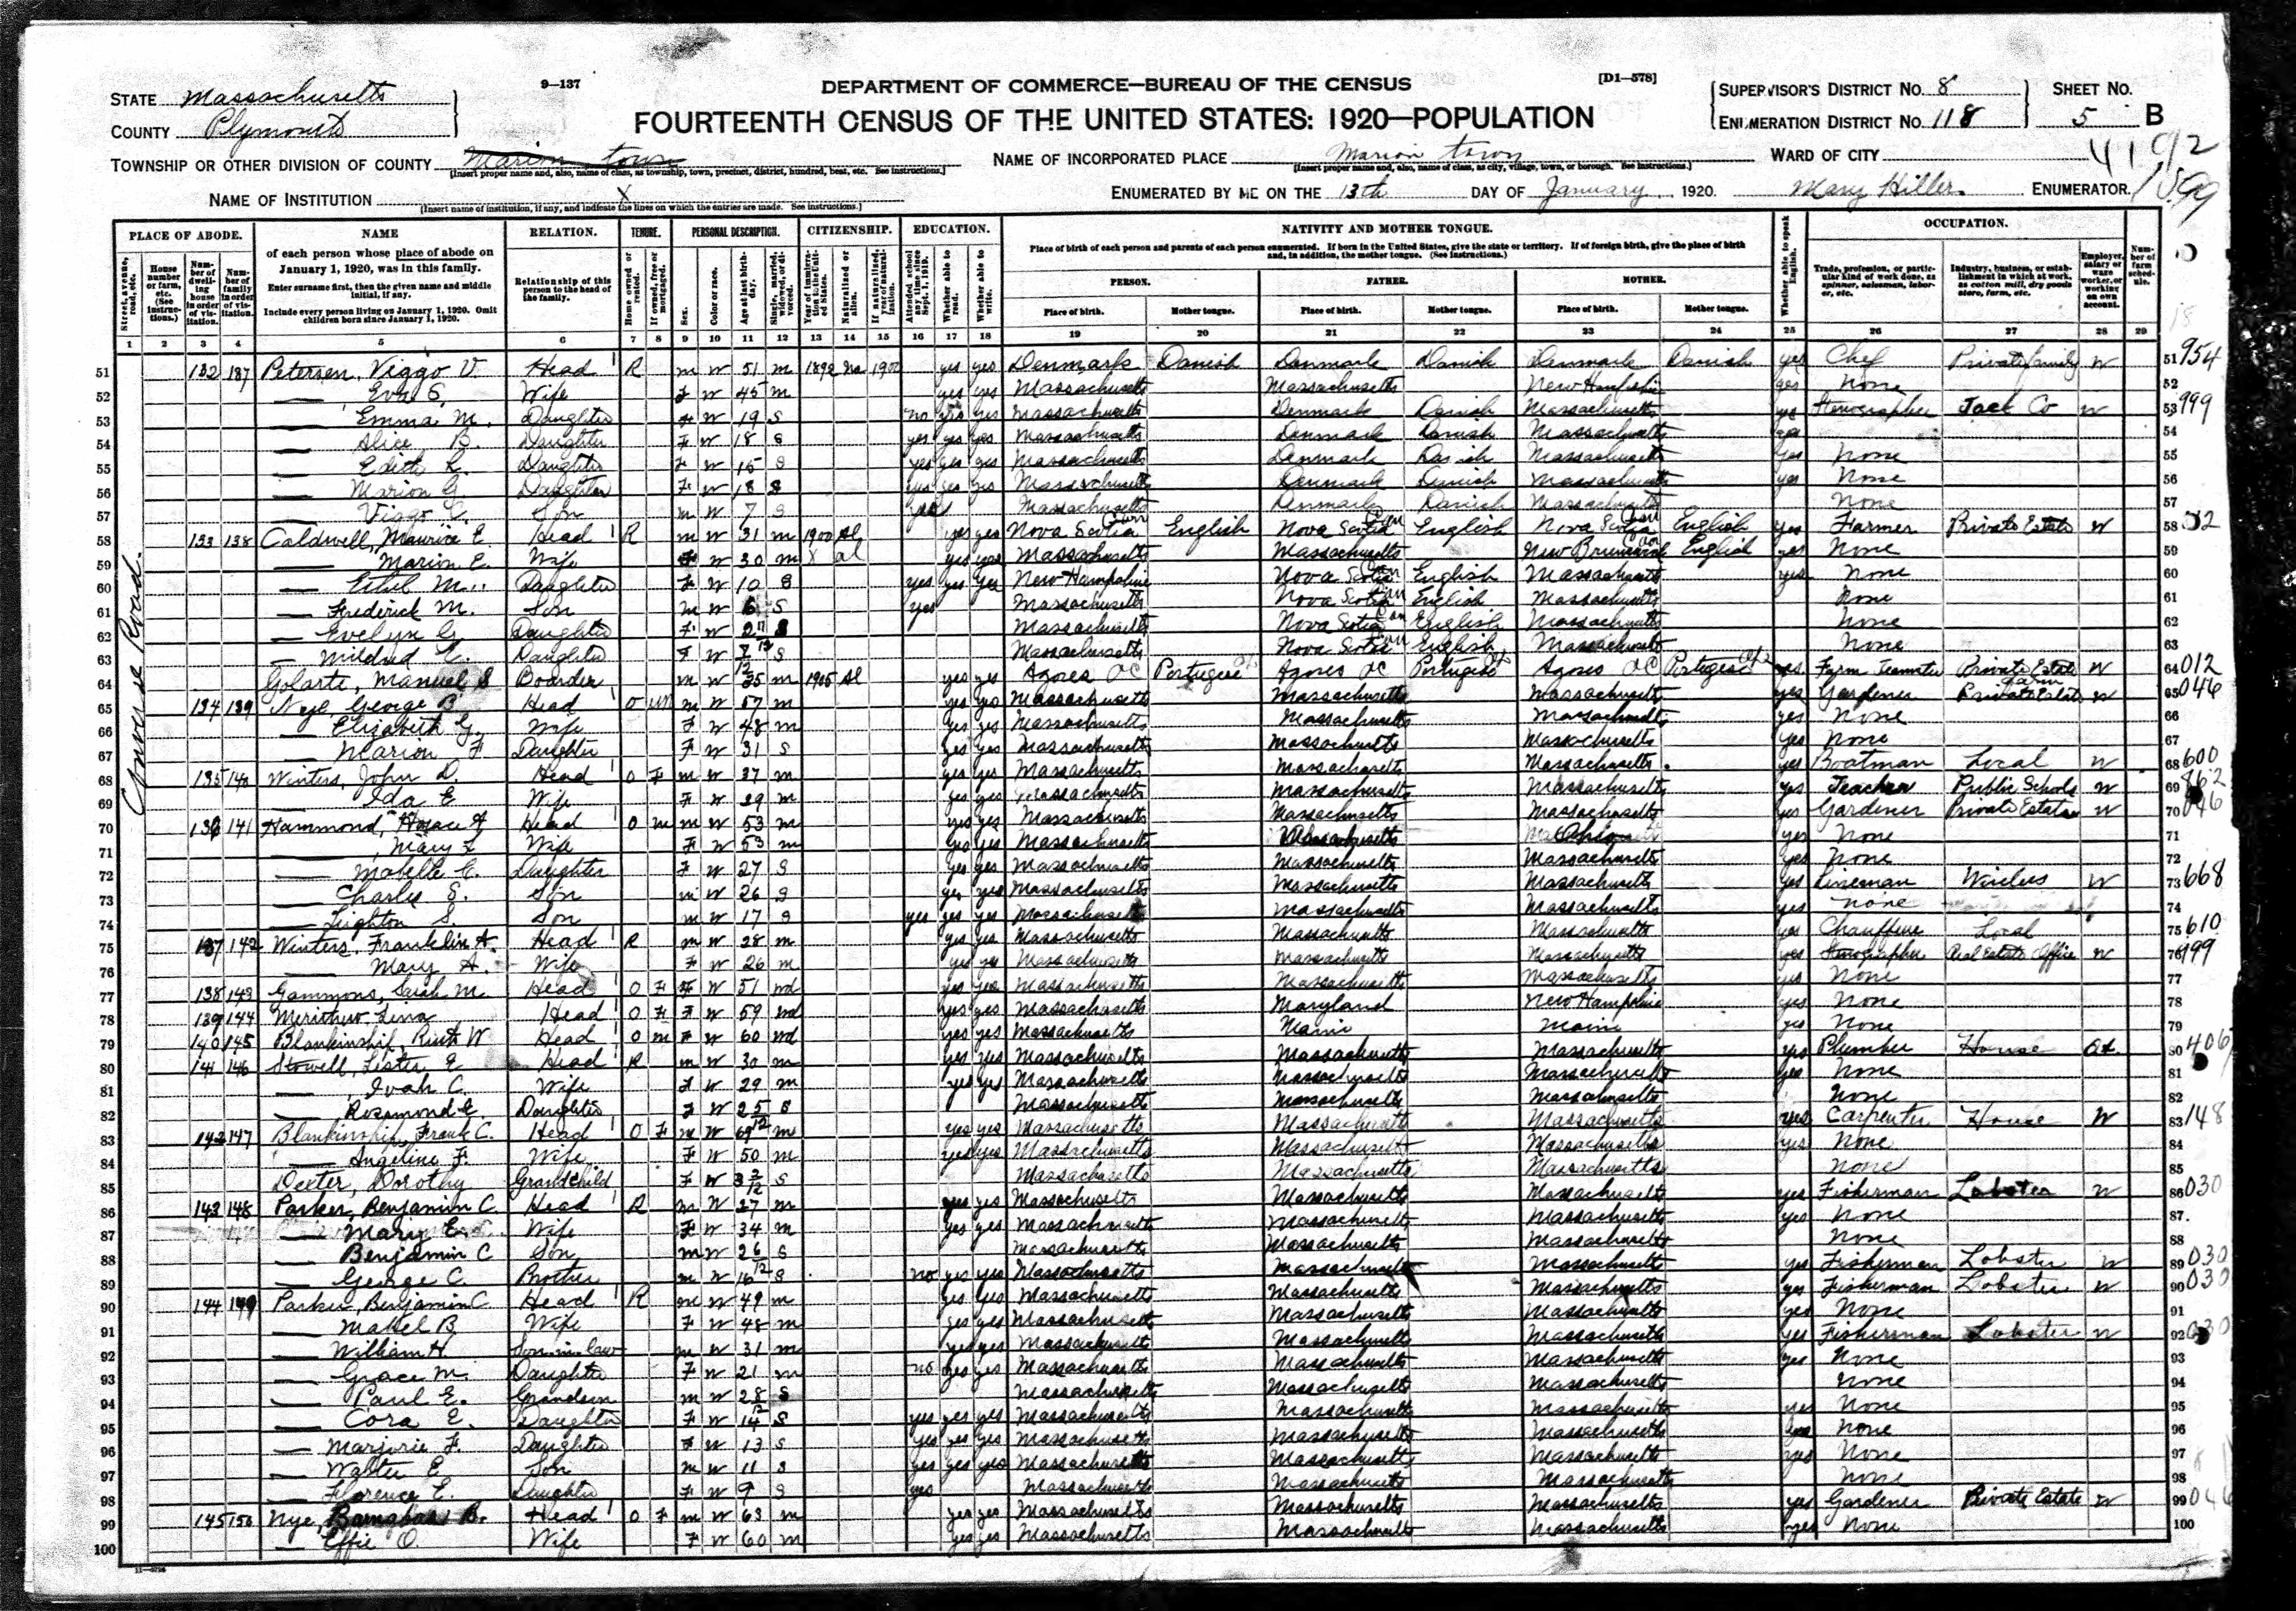 9–137 DEPARTMENT OF COMMERCE—BUREAU OF THE CENSUS [D1—578]
STATE Massachusetts SUPERVISOR'S DISTRICT No. 8 SHEET No.
COUNTY Plymouth FOURTEENTH CENSUS OF THE UNITED STATES: 1920—POPULATION ENUMERATION DISTRICT No. 118 5 B
TOWNSHIP OR OTHER DIVISION OF COUNTY Marion town NAME OF INCORPORATED PLACE Marion town WARD OF CITY
[Insert proper name and, also, name of class, as township, town, precinct, district, hundred, beat, etc. See instructions.] [Insert proper name and, also, name of class, as city, village, town, or borough. See instructions.]
NAME OF INSTITUTION X ENUMERATED BY ME ON THE 13th DAY OF January, 1920. Mary Hiller. ENUMERATOR.
[Insert name of institution, if any, and indicate the lines on which the entries are made. See instructions.]
PLACE OF ABODE. NAME RELATION. TENURE. PERSONAL DESCRIPTION. CITIZENSHIP. EDUCATION. NATIVITY AND MOTHER TONGUE. OCCUPATION.
of each person whose place of abode on January 1, 1920, was in this family.
Enter surname first, then the given name and middle initial, if any.
Include every person living on January 1, 1920. Omit children born since January 1, 1920.
Relationship of this person to the head of the family.
Place of birth of each person and parents of each person enumerated. If born in the United States, give the state or territory. If of foreign birth, give the place of birth and, in addition, the mother tongue. (See instructions.)
PERSON. FATHER. MOTHER.
Place of birth. Mother tongue. Place of birth. Mother tongue. Place of birth. Mother tongue.
1 2 3 4 5 6 7 8 9 10 11 12 13 14 15 16 17 18 19 20 21 22 23 24 25 26 27 28 29
51 132 137 Petersen, Viggo V. Head R m W 51 m 1892 na 1900 yes yes Denmark Danish Denmark Danish Denmark Danish yes Chef Private family W 51 954
52 Eva S. Wife F W 45 m yes yes Massachusetts Massachusetts New Hampshire yes none 52
53 Emma M. Daughter F W 19 S no yes yes Massachusetts Denmark Danish Massachusetts yes Stenographer Tack Co W 53 999
54 Alice B. Daughter F W 18 S yes yes yes Massachusetts Denmark Danish Massachusetts yes 54
55 Edith L. Daughter F W 15 S yes yes yes Massachusetts Denmark Danish Massachusetts yes None 55
56 Marion G. Daughter F W S yes yes yes Massachusetts Denmark Danish Massachusetts yes None 56
57 Viggo C. Son m W 7 S yes Massachusetts Denmark Danish Massachusetts None 57
58 133 138 Caldwell, Maurice E. Head R m W 31 m 1900 Al yes yes Nova Scotia Can English Nova Scotia Can English Nova Scotia Can English yes Farmer Private Estate W 58
59 Marion E. Wife F W 30 m X al yes yes Massachusetts Massachusetts New Brunswick Can English yes None 59
60 Ethel M. Daughter F W 10 S yes yes yes New Hampshire Nova Scotia Can English Massachusetts yes None 60
61 Frederick M. Son m W 6 S yes Massachusetts Nova Scotia Can English Massachusetts None 61
62 Evelyn G. Daughter F W 2 11/12 S Massachusetts Nova Scotia Can English Massachusetts None 62
63 Mildred E. Daughter F W S Massachusetts Nova Scotia Can English Massachusetts None 63
64 Golarte, Manuel S Boarder m W 35 m 1905 Al yes yes Agores Portugese Agores Portugese Agores Portugese yes Farm Teamster Private Estate W 64 012
65 134 139 Nye, George B Head O un m W 57 m yes yes Massachusetts Massachusetts Massachusetts yes Gardener Private Estate W 65 046
66 Elizabeth G. Wife F W 48 m yes yes Massachusetts Massachusetts Massachusetts yes None 66
67 Marion F Daughter F W 31 S yes yes Massachusetts Massachusetts Massachusetts yes None 67
68 135 140 Winters, John D. Head O F m W 37 m yes yes Massachusetts Massachusetts Massachusetts yes Boatman Local W 68 600
69 Ida E Wife F W 29 m yes yes Massachusetts Massachusetts Massachusetts yes Teacher Public Schools W 69 862
70 136 141 Hammond, Horace A Head O m m W 53 m yes yes Massachusetts Massachusetts Massachusetts yes Gardener Private Estate W 70 046
71 Mary L Wife F W 53 m yes yes Massachusetts Massachusetts yes None 71
72 Mabelle C. Daughter F W 27 S yes yes Massachusetts Massachusetts Massachusetts yes None 72
73 Charles S. Son m W 26 S yes yes Massachusetts Massachusetts Massachusetts yes Lineman Wireless W 73 668
74 Leighton S. Son m W 17 S yes yes yes Massachusetts Massachusetts Massachusetts yes none 74
75 137 142 Winters, Franklin A. Head R m W 28 m yes yes Massachusetts Massachusetts Massachusetts yes Chauffeur Local 75 610
76 Mary A. Wife F W 26 m yes yes Massachusetts Massachusetts Massachusetts yes Stenographer Real Estate Office W 76 999
77 138 143 Gammons, Sarah M. Head O F F W 51 wd yes yes Massachusetts Massachusetts Massachusetts yes None 77
78 139 144 Merithew Lena Head O F F W 59 wd yes yes Massachusetts Maryland New Hampshire yes None 78
79 140 145 Blankinship, Ruth W Head O m F W 60 wd yes yes Massachusetts Maine Maine yes None 79
80 141 146 Stowell, Lister E Head R m W 30 m yes yes Massachusetts Massachusetts Massachusetts yes Plumber House 80 406
81 Ivah C. Wife F W 29 m yes yes Massachusetts Massachusetts Massachusetts yes None 81
82 Rosamond E. Daughter F W 2 5/12 S Massachusetts Massachusetts Massachusetts None 82
83 142 147 Blankinship, Frank C. Head O F m W 69 m yes yes Massachusetts Massachusetts Massachusetts yes Carpenter House W 83 148
84 Angeline F. Wife F W 50 m yes yes Massachusetts Massachusetts Massachusetts yes None 84
85 Dexter, Dorothy Grandchild F W S Massachusetts Massachusetts Massachusetts none 85
86 143 148 Parker, Benjamin C. Head R m W 27 m yes yes Massachusetts Massachusetts Massachusetts yes Fisherman Lobster W 86 030
87 Mary E. Wife F W 34 m yes yes Massachusetts Massachusetts Massachusetts yes None 87
88 Benjamin C Son m W 2 6/12 S Massachusetts Massachusetts Massachusetts None 88
89 George C. Brother m W 16 S no yes yes Massachusetts Massachusetts Massachusetts yes Fisherman Lobster W 89 030
90 144 149 Parker, Benjamin C Head R m W 49 m yes yes Massachusetts Massachusetts Massachusetts yes Fisherman Lobster W 90 030
91 Mabel B. Wife F W 48 m yes yes Massachusetts Massachusetts Massachusetts yes None 91
92 William H Son-in-law m W 31 m yes yes Massachusetts Massachusetts Massachusetts yes Fisherman Lobster W 92 030
93 Grace M Daughter F W 21 m no yes yes Massachusetts Massachusetts Massachusetts yes None 93
94 Paul E. Grandson m W 2 8/12 S Massachusetts Massachusetts Massachusetts None 94
95 Cora E. Daughter F W 14 S yes yes yes Massachusetts Massachusetts Massachusetts yes None 95
96 Marjorie F. Daughter F W 13 S yes yes yes Massachusetts Massachusetts Massachusetts yes None 96
97 Walter E Son m W 11 S yes yes yes Massachusetts Massachusetts Massachusetts yes None 97
98 Florence E. Daughter F W 9 S yes Massachusetts Massachusetts Massachusetts None 98
99 145 150 Nye, Barnabas B. Head O F m W 63 m yes yes Massachusetts Massachusetts Massachusetts yes Gardener Private Estate W 99 046
100 Effie O. Wife F W 60 m yes yes Massachusetts Massachusetts Massachusetts yes None 100